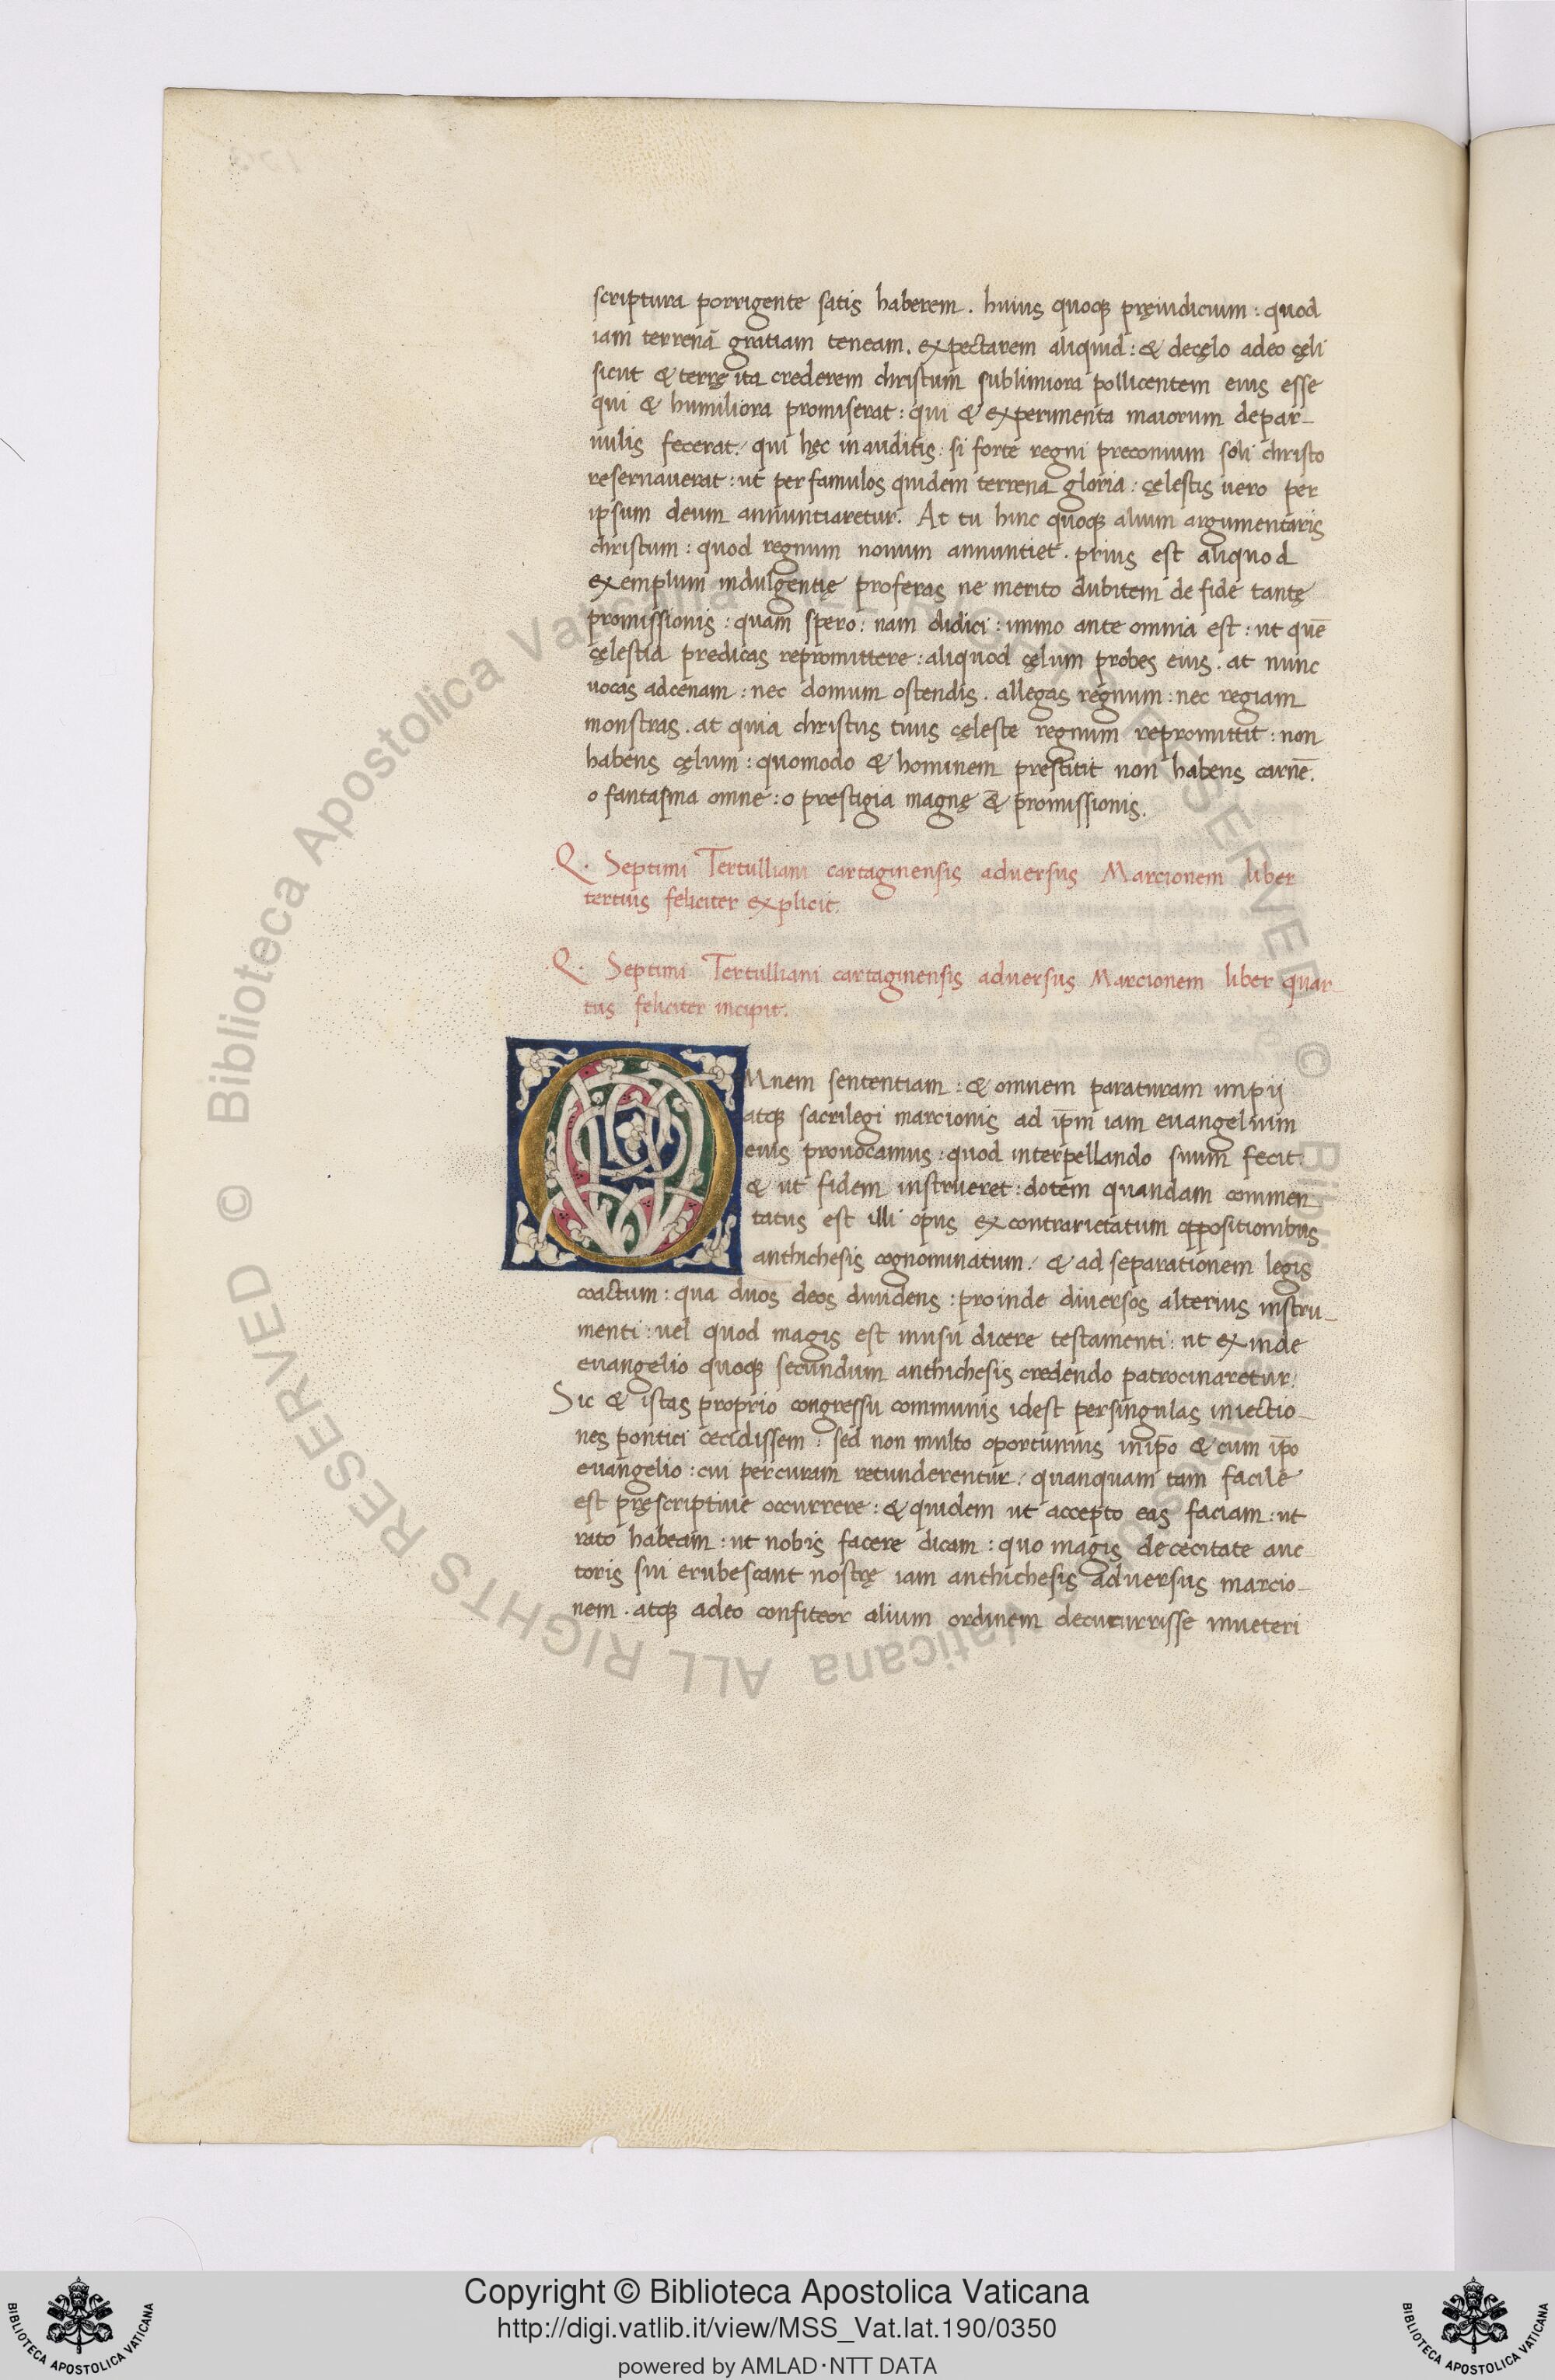 scriptura porrigente satis haberem. huius quoqꝫ pręiudicium: quod
iam terrenā gratiam teneam. expectarem aliquid: & decęlo adeo cęli
sicut & terrę ita crederem christum sublimiora pollicentem eius esse
qui & humiliora promiserat: qui & experimenta maiorum depar-
uulis fecerat. qui hęc inauditis: si forte regni preconium soli christo
reseruauerat: ut per famulos quidem terrena gloria: cęlestis uero per
ipsum deum annuntiaretur. At tu hinc quoqꝫ alium argumentaris
christum: quod regnum nouum annuntiet. prius est aliquod
exemplum indulgentię proferas ne merito dubitem de fide tantę
promissionis: quam spero: nam didici: immo ante omnia est: ut quē
cęlestia predicas repromittere: aliquod cęlum probes eius. at nunc
uocas adcenam: nec domum ostendis. allegas regnum: nec regiam
monstras. at quia christus tuus cęleste regnum repromittit: non
habens cęlum: quomodo & hominem prestitit non habens carnē.
o fantasma omne: o prestigia magnę & promissionis.
.Q. Septimi Tertulliani cartaginensis adversus Marcionem liber
tertius feliciter explicit.
.Q. Septimi Tertulliani cartaginensis adversus Marcionem liber quar-
tus feliciter incipit.
OMnem sententiam: & omnem paraturam impij
atqꝫ sacrilegi marcionis ad ip̄m iam euangelium
eius prouocamus: quod interpellando suum fecit.
& ut fidem instrueret: dotem quandam commen
tatus est illi opus ex contrarietatum oppositionibus
anthichesis cognominatum. & ad separationem legis
coactum: qua duos deos diuidens: proinde diversos alterius instru-
menti: uel quod magis est inusu dicere testamenti: ut exinde
euangelio quoqꝫ secundum anthichesis credendo patrocinaretur.
Sic & istas proprio congressu communis idest persingulas iniectio-
nes pontici cecidissem: sed non multo oportunius inip̄o & cum ip̄o
euangelio: cui percuram retunderentur. quanquam tam facile
est pręscriptiue occurrere: & quidem ut accepto eas faciam: ut
rato habeam: ut nobis facere dicam: quo magis de cecitate auc-
toris sui erubescant nostrę iam anthichesis adversus marcio-
nem. atqꝫ adeo confiteor alium ordinem decucurrisse inueteri
© Biblioteca Apostolica Vaticana ALL RIGHTS RESERVED © Biblioteca Apostolica Vaticana ALL RIGHTS RESERVED
Copyright © Biblioteca Apostolica Vaticana
http://digi.vatlib.it/view/MSS_Vat.lat.190/0350
powered by AMLAD·NTT DATA
BIBLIOTECA APOSTOLICA VATICANA
BIBLIOTECA APOSTOLICA VATICANA